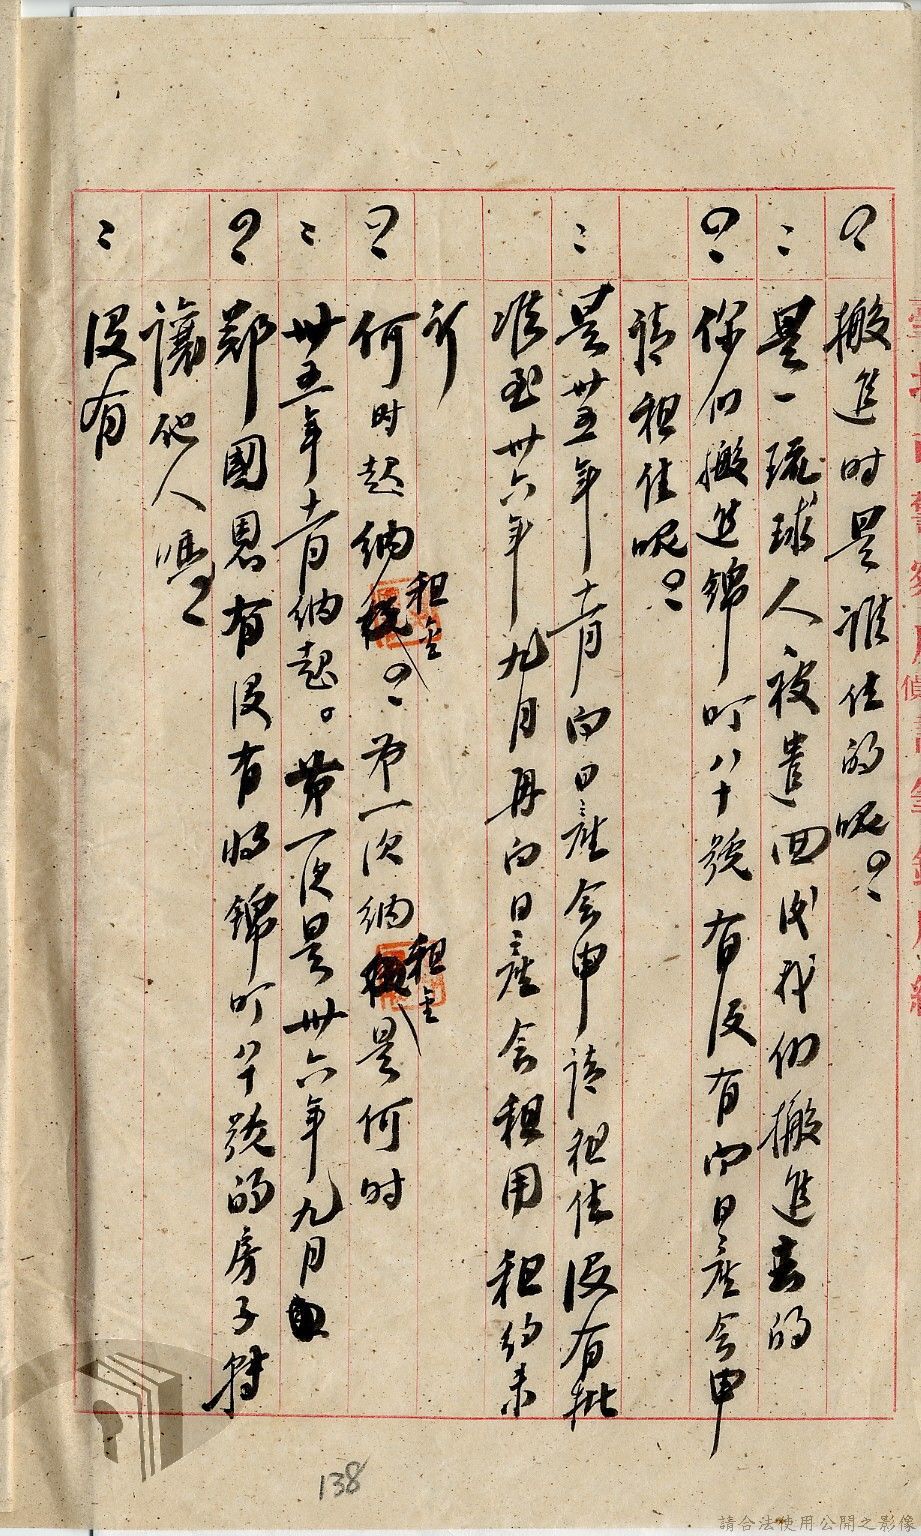 ？搬進時是誰住的呢？
：是一琉球人被遣回後我們搬進去的
？你們搬進錦町八十號有沒有向日產會申
請租住呢？
：是卅五年十一月向日產會申請租住沒有批
准至卅六年九月再向日產會租用租約未
訂
？何时起納租金？第一次納租金是何时
：卅五年十一月納起。第一次是卅六年九月
？鄭國恩有沒有將錦町八十號的房子轉
讓他人嗎？
：沒有
138
請合法使用公開之影像